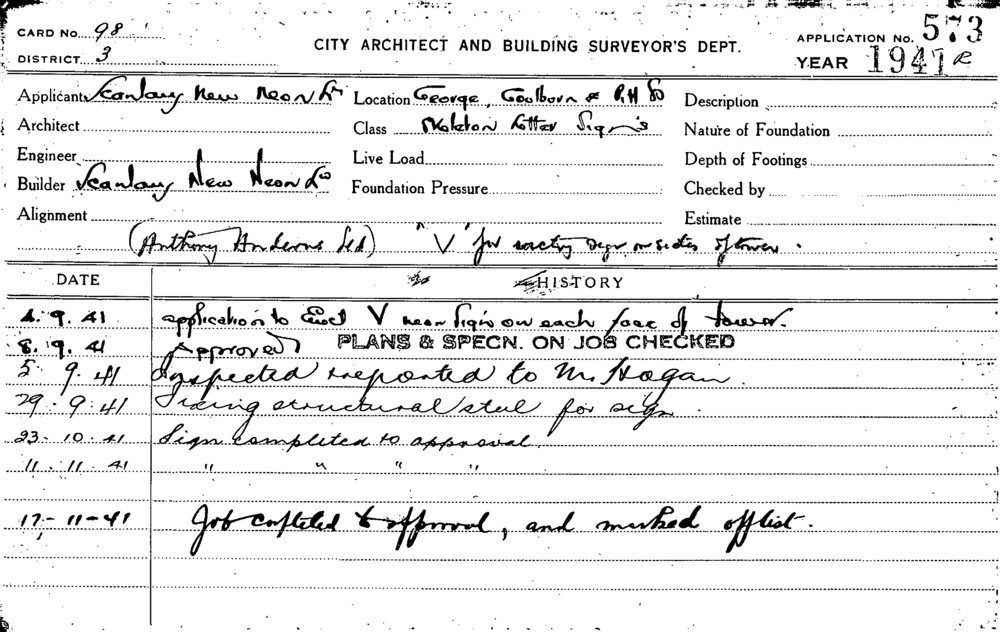 CARD No. 98
DISTRICT 3
CITY ARCHITECT AND BUILDING SURVEYOR'S DEPT.
APPLICATION No. 573
YEAR 1941 R
Applicant New Neon
Location George, Goulburn & Pitt
Description
Architect
Class Skeleton Letter Signs
Nature of Foundation
Engineer
Live Load
Depth of Footings
Builder New Neon
Foundation Pressure
Checked by
Alignment
Estimate
(Anthony Horderns Ltd) "V" for sign on sides of tower.
DATE HISTORY
4. 9. 41 application to Erect V neon signs on each face of tower.
8. 9. 41 Approved PLANS & SPECN. ON JOB CHECKED
5 9. 41 Inspected & reported to Mr Hogan.
29. 9. 41 Fixing structural steel for sign
23. 10. 41 Sign completed to approval.
11. 11. 41 " " " "
17-11-41 Job completed to approval, and marked off list.